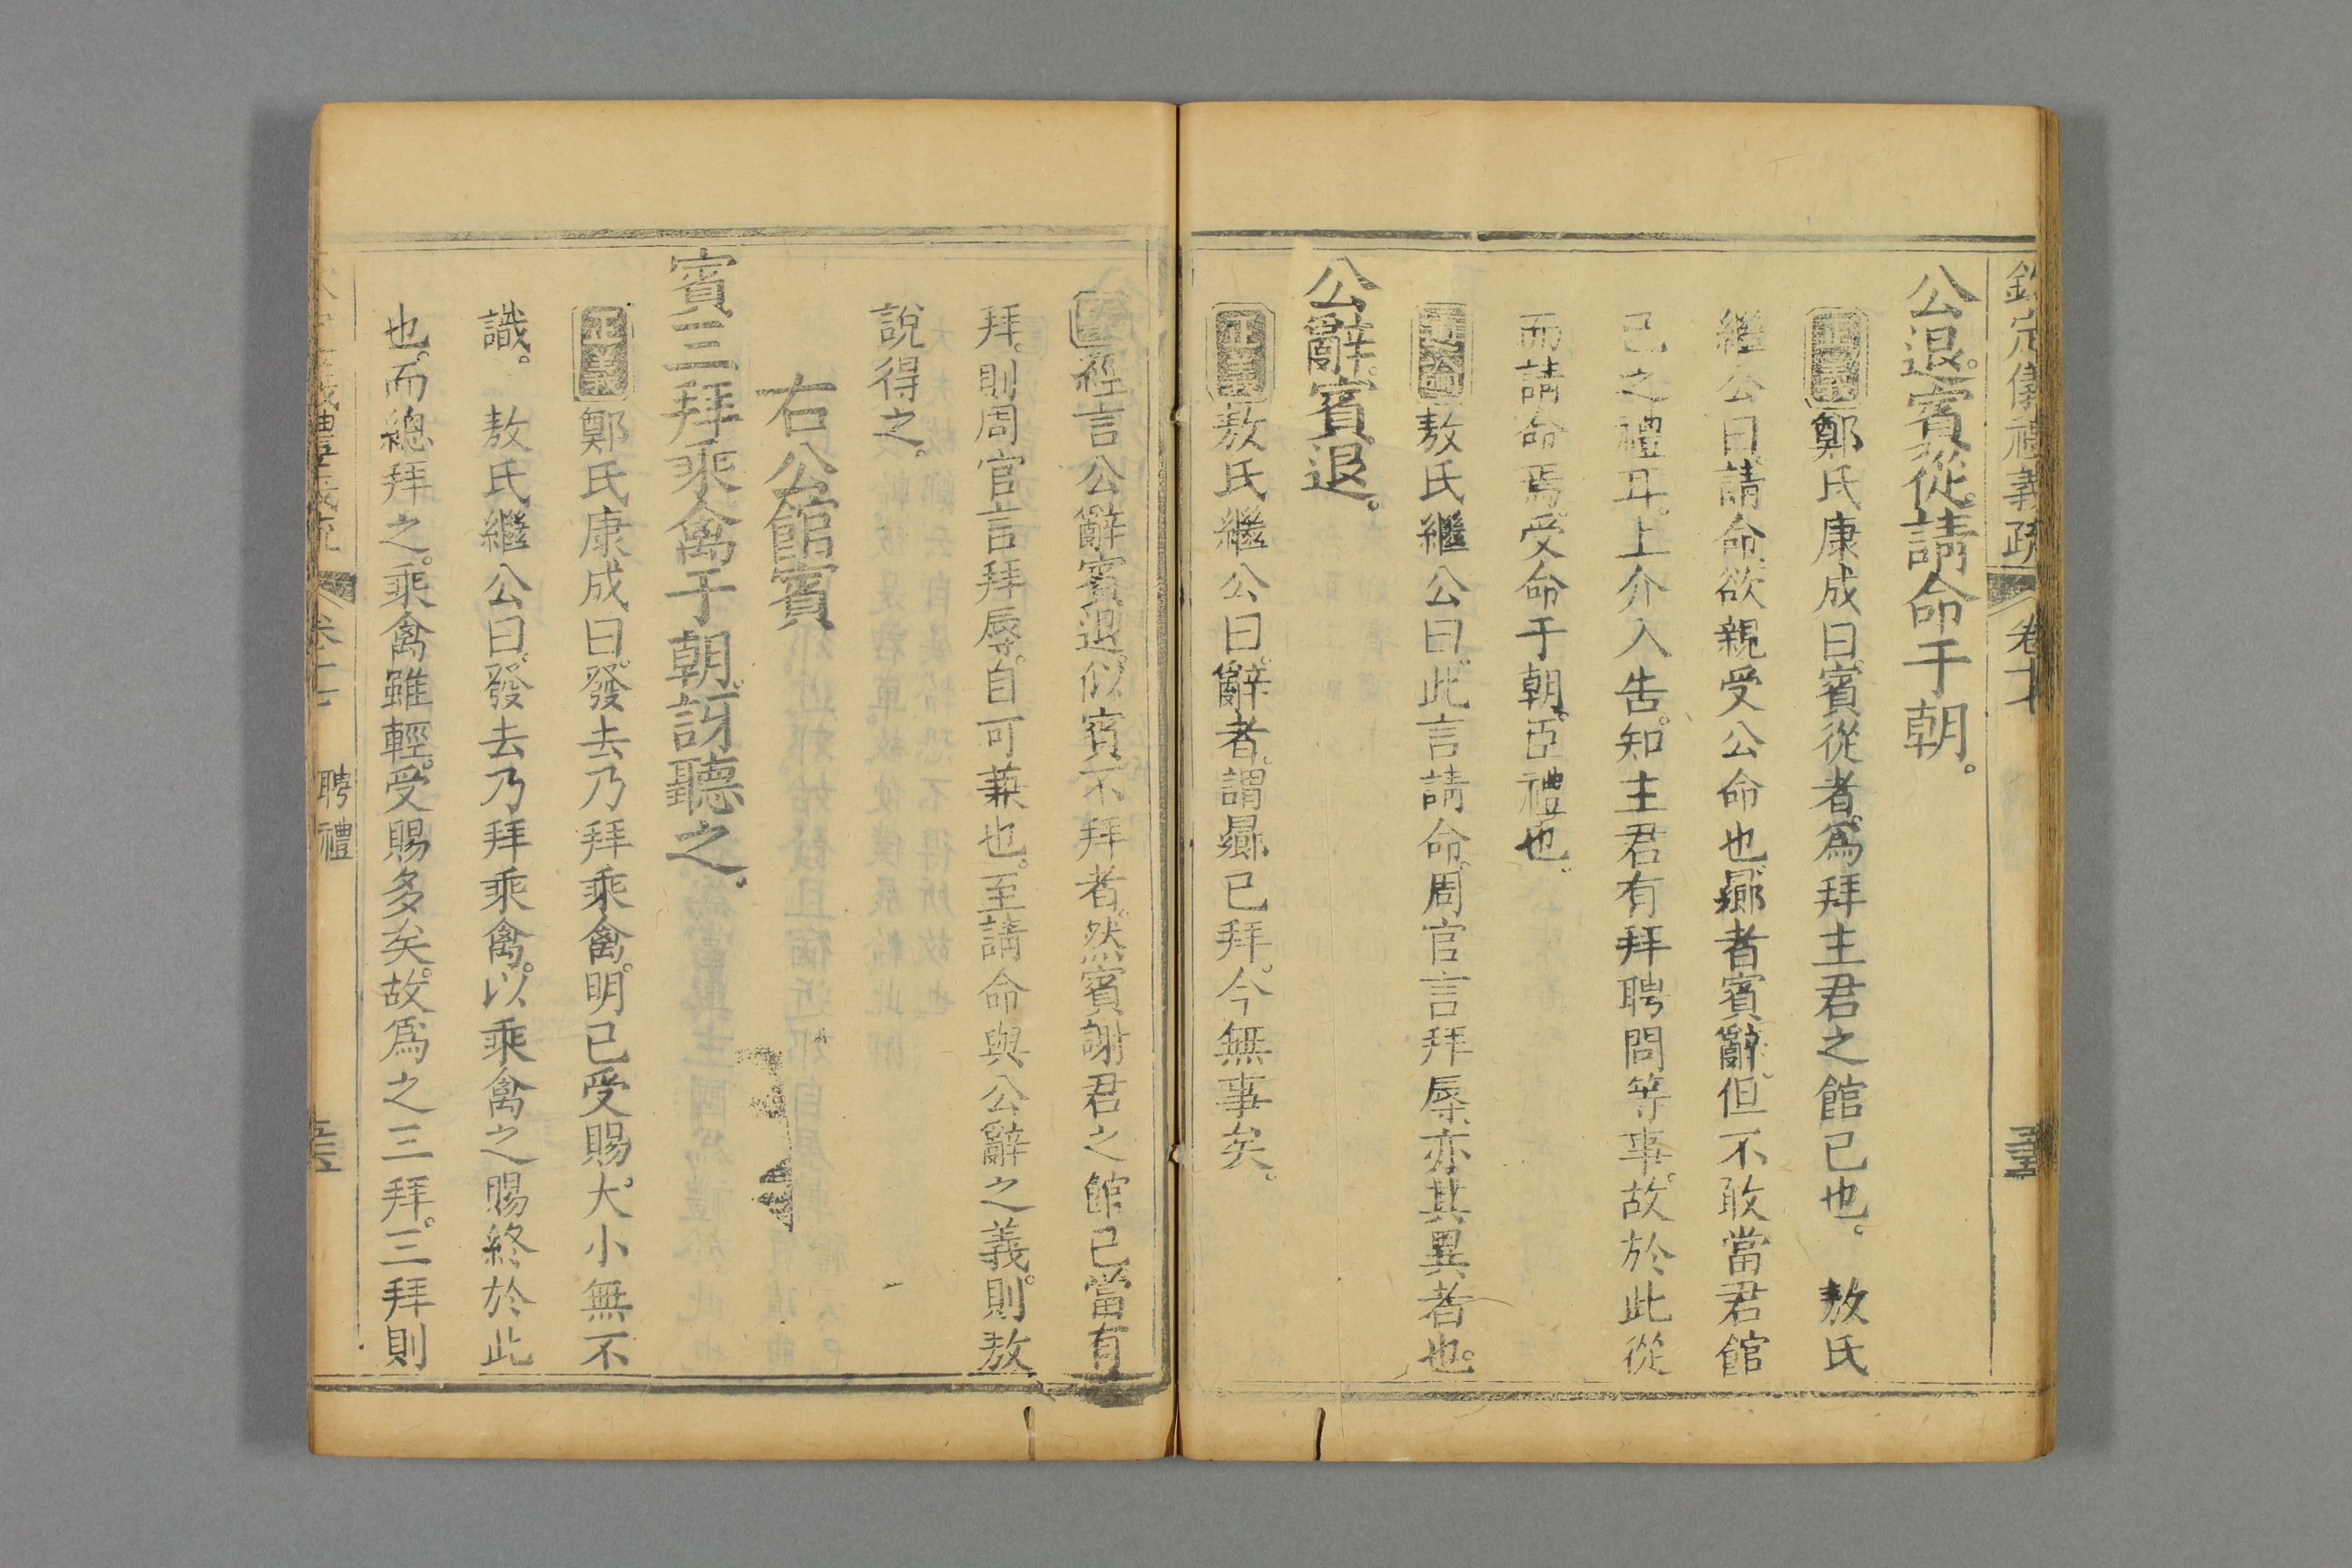 欽定儀禮義疏 卷十八
公退。賓從。請命于朝。
正義鄭氏康成曰。賓從者。爲拜主君之館已也。 敖氏
繼公曰。請命。欲親受公命也。曏者賓辭。但不敢當君館
己之禮耳。上介入告。知主君有拜聘問等事。故於此從
而請命焉。受命于朝。臣禮也。
敖氏繼公曰。此言請命。周官言拜辱。亦其異者也。
公辭。賓退。
正義敖氏繼公曰。辭者。謂曏已拜。今無事矣。
經言公辭賓退。似賓不拜者。然賓謝君之館已。當有
拜。則周官言拜辱。自可兼也。至請命與公辭之義。則敖
說得之。
右公館賓
賓三拜乘禽于朝。訝聽之。
正義鄭氏康成曰。發去乃拜乘禽。明已受賜。大小無不
識。 敖氏繼公曰。發去乃拜乘禽。以乘禽之賜終於此
也。而總拜之。乘禽雖輕。受賜多矣。故爲之三拜。三拜則
聘禮